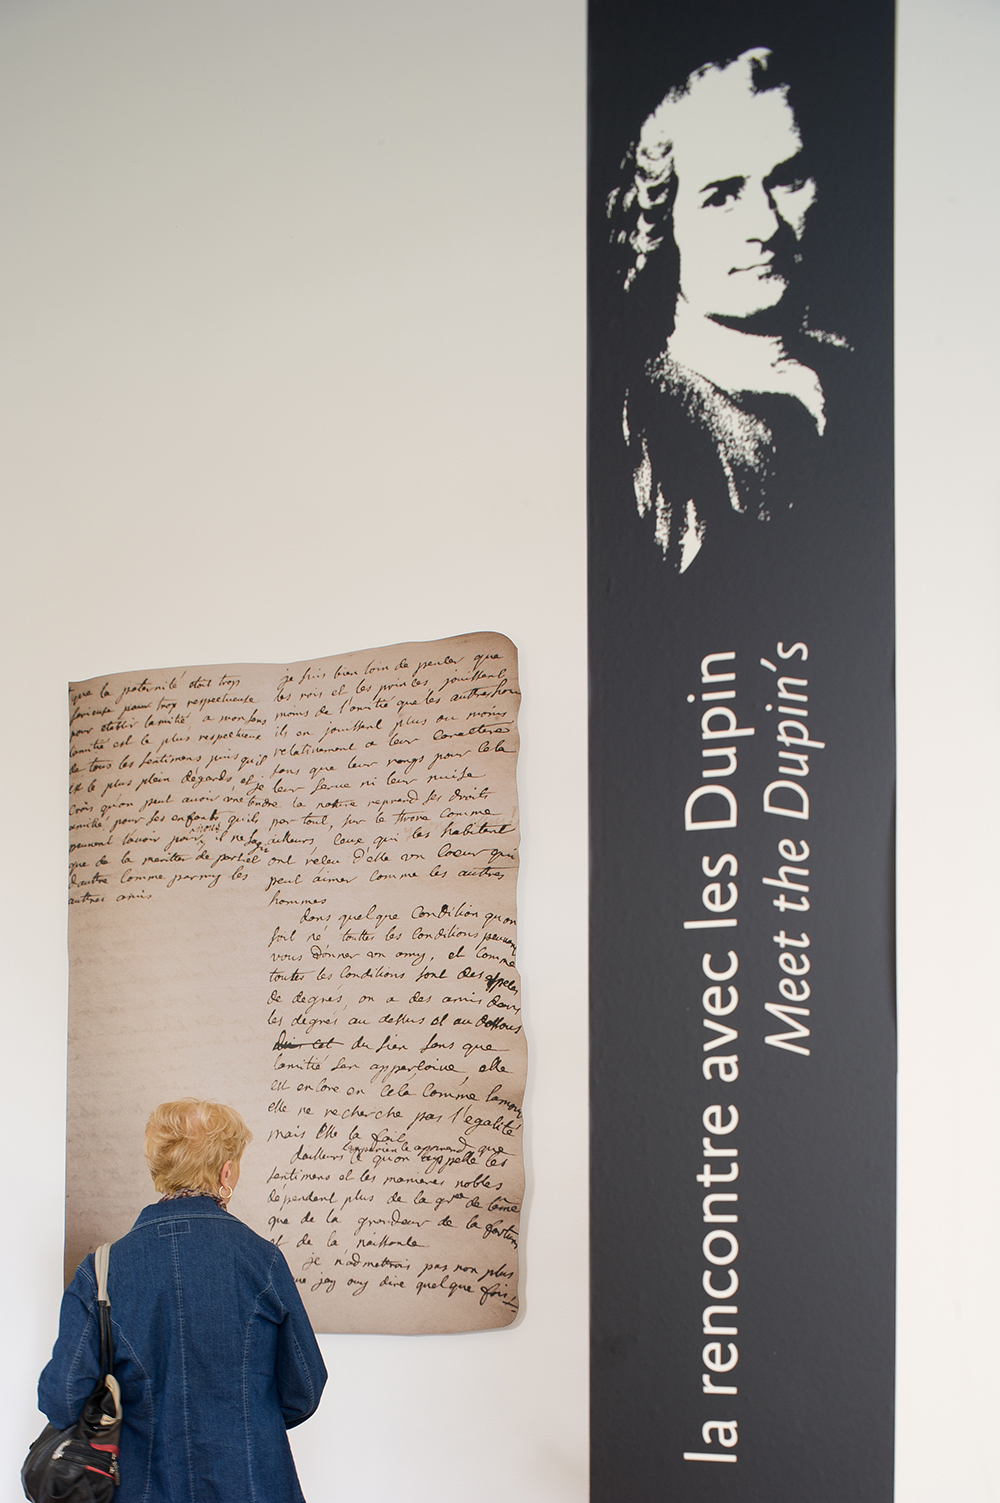 que la paternité étoit trop
serieuse pour trop respectueuse
pour etablir lamitié a mon sens
lamitié est le plus respectueux
de tous les sentimens puis qu'il
est le plus plein dégards et je
crois qu'on peut avoir une tendre
amitié pour ses enfants, quils
peuvent lavoir pour nous, il ne sagit
que de la meritter de part et
dautre comme parmy les
autres amis
je suis bien loin de penser que
les rois et les princes jouissent
moins de l'amitié que les autres hom
ils en jouissent plus ou moins
relativement a leur caractere
sans que leur rangs pour cela
leur serve ni leur nuise
la nature reprend ses droits
par tout, sur le throne comme
ailleurs, ceux qui les habitent
ont releu d'elle un coeur qui
peut aimer comme les autres
hommes
dans quelque condition quon
soit né touttes les conditions peuvent
vous donner un amy, et comme
touttes les conditions sont des
de degrés, on a des amis dans
les degrés au dessus et au dessous
du sien sans que
lamitié sen apperçoive, elle
est encore en cela comme lamour
elle ne recherche pas l'egalité
mais elle la fait
dailleurs apprend que
ce quon appelle les
sentimens et les manieres nobles
dependent plus de la de lame
que de la grandeur de la fortune
et de la naissance
je n'admettrois pas non plus
que jay ouy dire quelque fois
la rencontre avec les Dupin
Meet the Dupin's